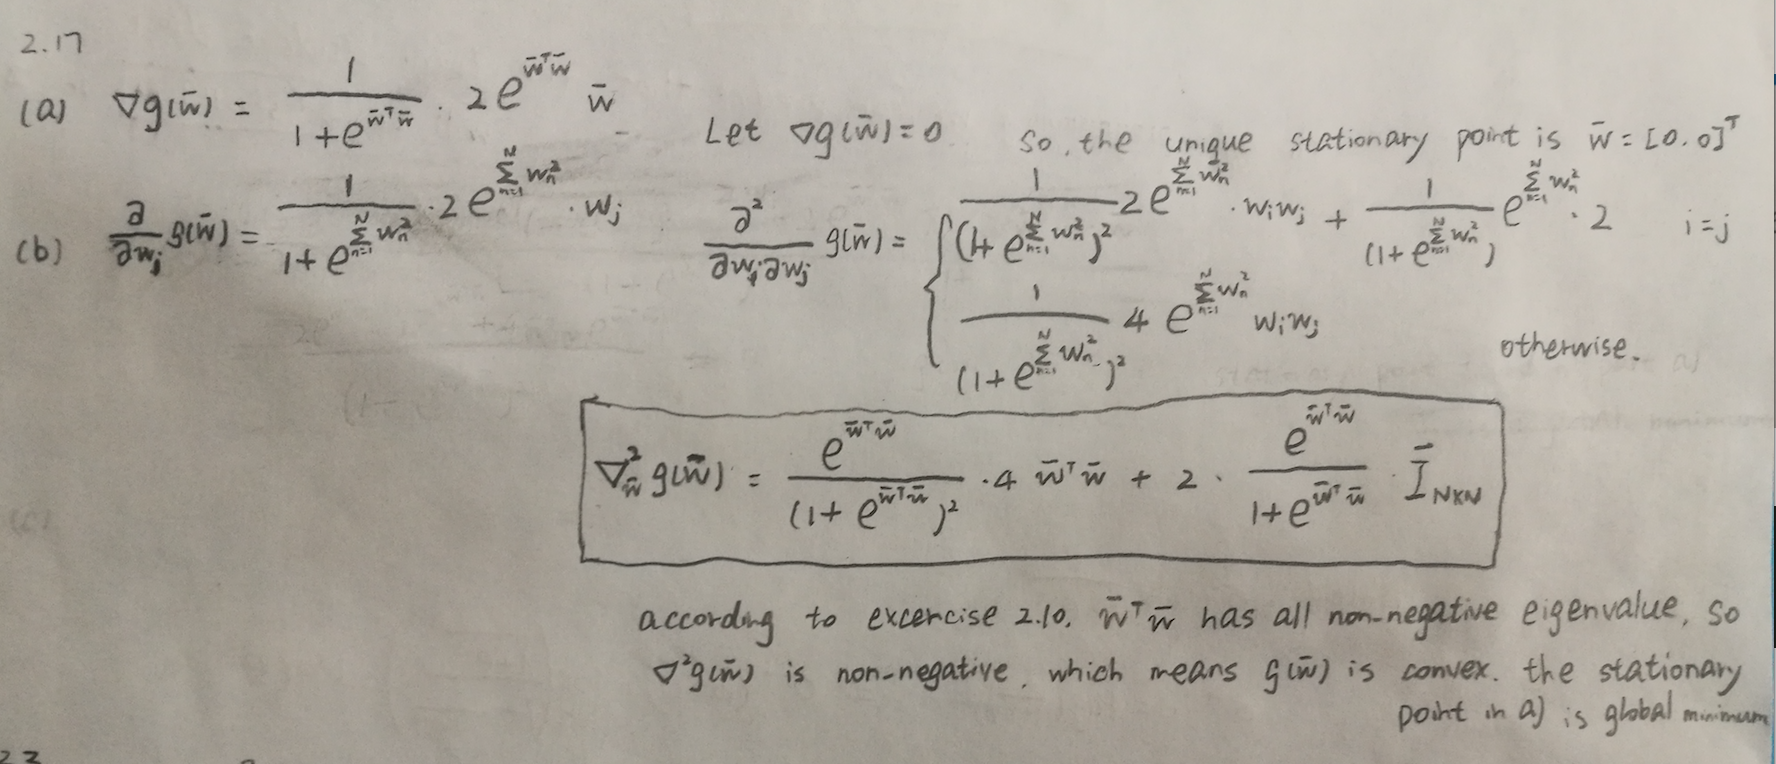 2.17
(a) ∇g(w̄) = 1/(1+e^{w̄ᵀw̄}) · 2e^{w̄ᵀw̄} w̄ Let ∇g(w̄)=0 So, the unique stationary point is w̄ = [0.0]ᵀ
(b) ∂/∂w_j g(w̄) = 1/(1+e^{Σ_{n=1}^{N} w_n²}) · 2e^{Σ_{n=1}^{N} w_n²} · w_j ∂²/∂w_i∂w_j g(w̄) = { 1/(1+e^{Σ_{n=1}^{N} w_n²})² 2e^{Σ_{n=1}^{N} w_n²} · w_i w_j + 1/(1+e^{Σ_{n=1}^{N} w_n²}) e^{Σ_{n=1}^{N} w_n²} · 2 i=j
1/(1+e^{Σ_{n=1}^{N} w_n²})² 4 e^{Σ_{n=1}^{N} w_n²} w_i w_j otherwise.
∇²_w̄ g(w̄) = e^{w̄ᵀw̄}/(1+e^{w̄ᵀw̄})² · 4 w̄ᵀw̄ + 2 · e^{w̄ᵀw̄}/(1+e^{w̄ᵀw̄}) · Ī_{N×N}
according to excercise 2.10, w̄ᵀw̄ has all non-negative eigenvalue, so
∇²g(w̄) is non-negative, which means g(w̄) is convex. the stationary
point in a) is global minimum